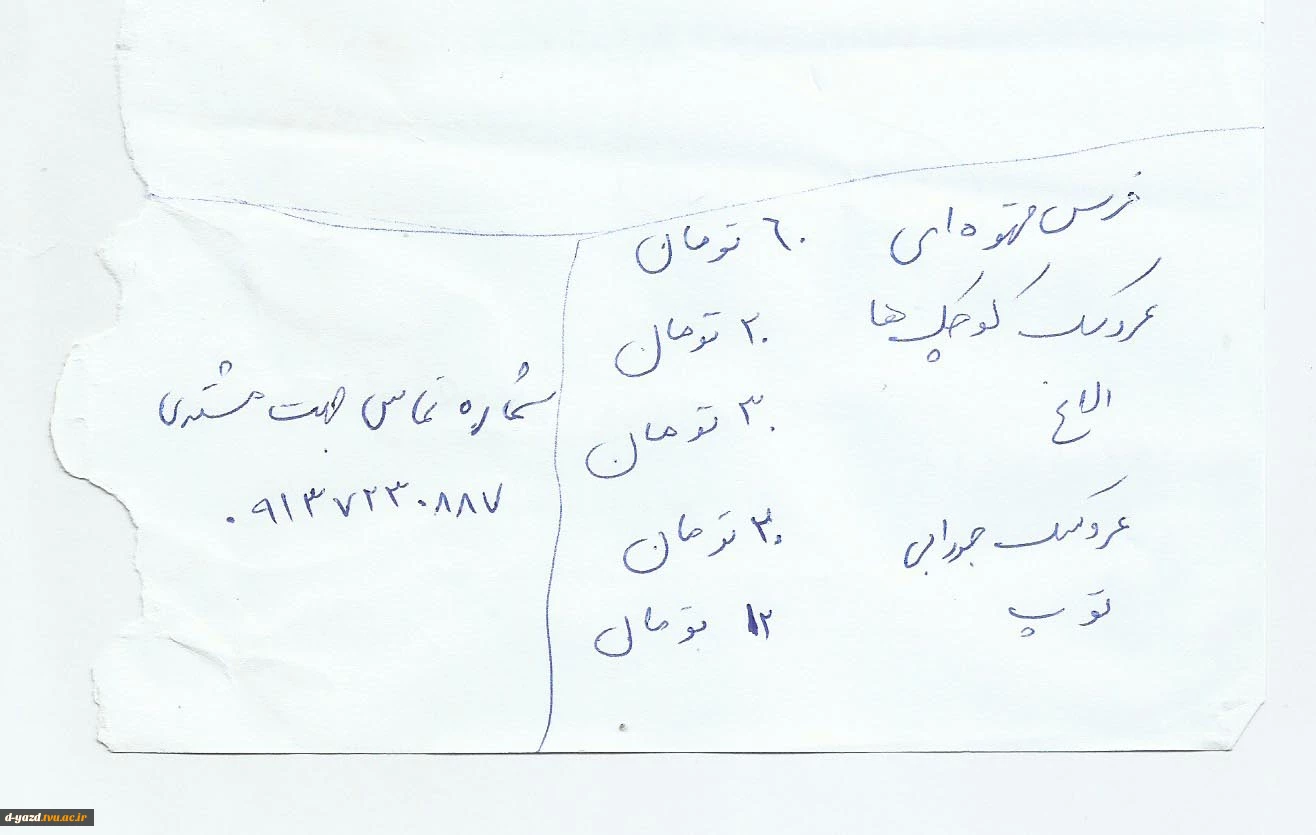 خرس قهوه ای ٦٠ تومان
عروسک کوچک ها ۲۰ تومان
الاغ ۳۰ تومان
عروسک جورابی ۳۰ تومان
توپ ۱۲ تومان
شماره تماس جهت مشتری
۰۹۱۳۷۲۳۰۸۸۷
d-yazd.tvu.ac.ir